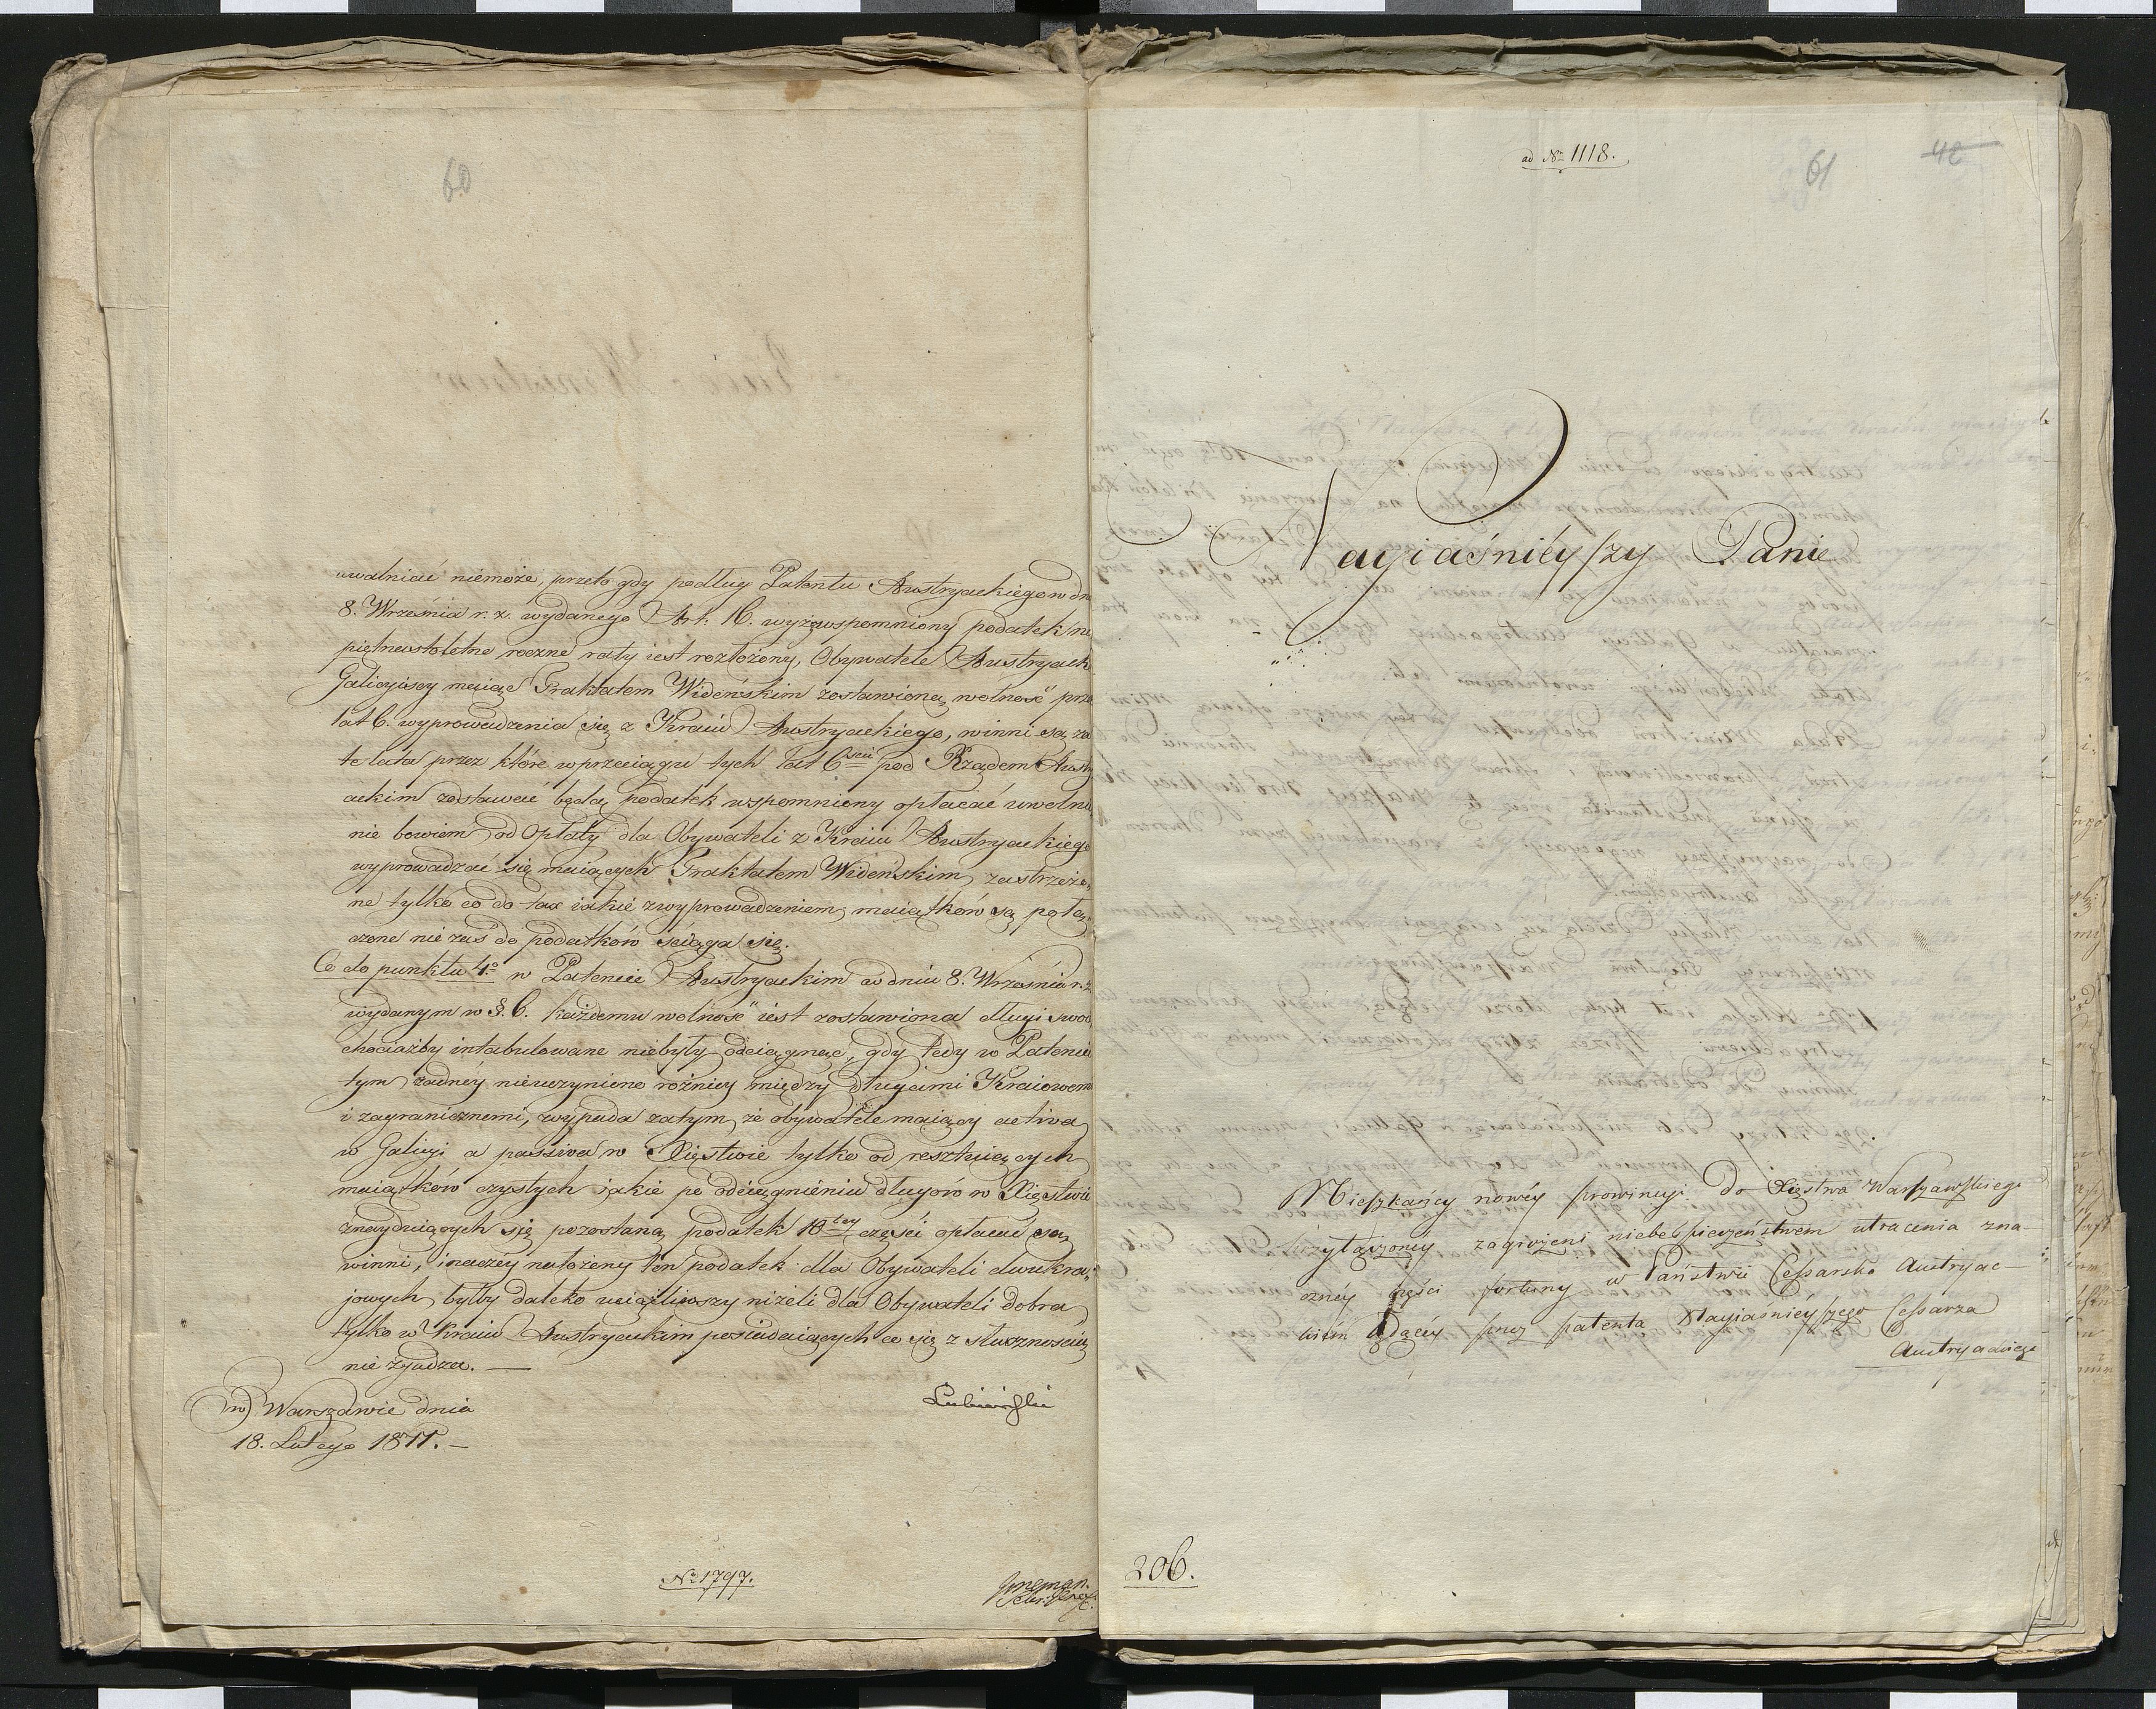 60
uwalniać niemoże, przeto gdy podług Patentu Austryackiego w dn
8. Września r. z. wydanego Art: 16. wyżewspomniony podatek na
piętnastoletne roczne raty iest rozłożony, Obywatele Austryack
Galicyiscy maiąc Traktatem Wideńskim zostawioną wolność prze
lat 6. wyprowadzenia się z Kraiu Austryackiego, winni są za
te lata przez które w przeciągu tych lat 6ściu pod Rządem Austry
ackim zostawać będą podatek wspomniony opłacać uwolnie
nie bowiem od Opłaty dla Obywateli z Kraiu Austryackiego
wyprowadzać się maiących Traktatem Wideńskim zastrzeżo„
ne tylko co do tax iakie z wyprowadzeniem maiątków są połą„
czone nie zaś do podatków ściąga się.
Co do punktu 4o w Patencie Austryackim w dniu 8. Września r. z.
wydanym w §. 6. każdemu wolność iest zostawiona długi swoie
chociażby intabulowane niebyły odciągnąć, gdy tedy w Patencie
tym żadnéy nieuczyniono różnicy między długami Kraiowemi
i zagranicznemi, wypada zatym, że obywatele maiący activa
w Galicyi a passiva w Xięstwie tylko od resztuiących
maiątków czystych iakie po odciągnieniu długów w Xięstwie
znayduiących się pozostaną podatek 10tey części opłacać są
winni, inaczéy nałożony ten podatek dla Obywateli dwukra„
jowych byłby daleko uciążliwszy niżeli dla Obywateli dobra
tylko w Kraiu Austryackim posiadaiących co się z słusznością
nie zgadza. —
w Warszawie dnia
18. Lutego 1811. —
Lubieński
No 1797.
ad No 1118.
61
42
Nayiaśniéyszy Panie
Mieszkańcy nowéy prowincyi do Xięstwa Warszawskiego
przyłączonéy zagrożeni niebespieczeństwem utracenia zna-
cznéy części fortuny w Państwie Cessarsko Austryac-
kiém będącéy przez patenta Nayiaśniéyszego Cessarza
Austryackiego
206.